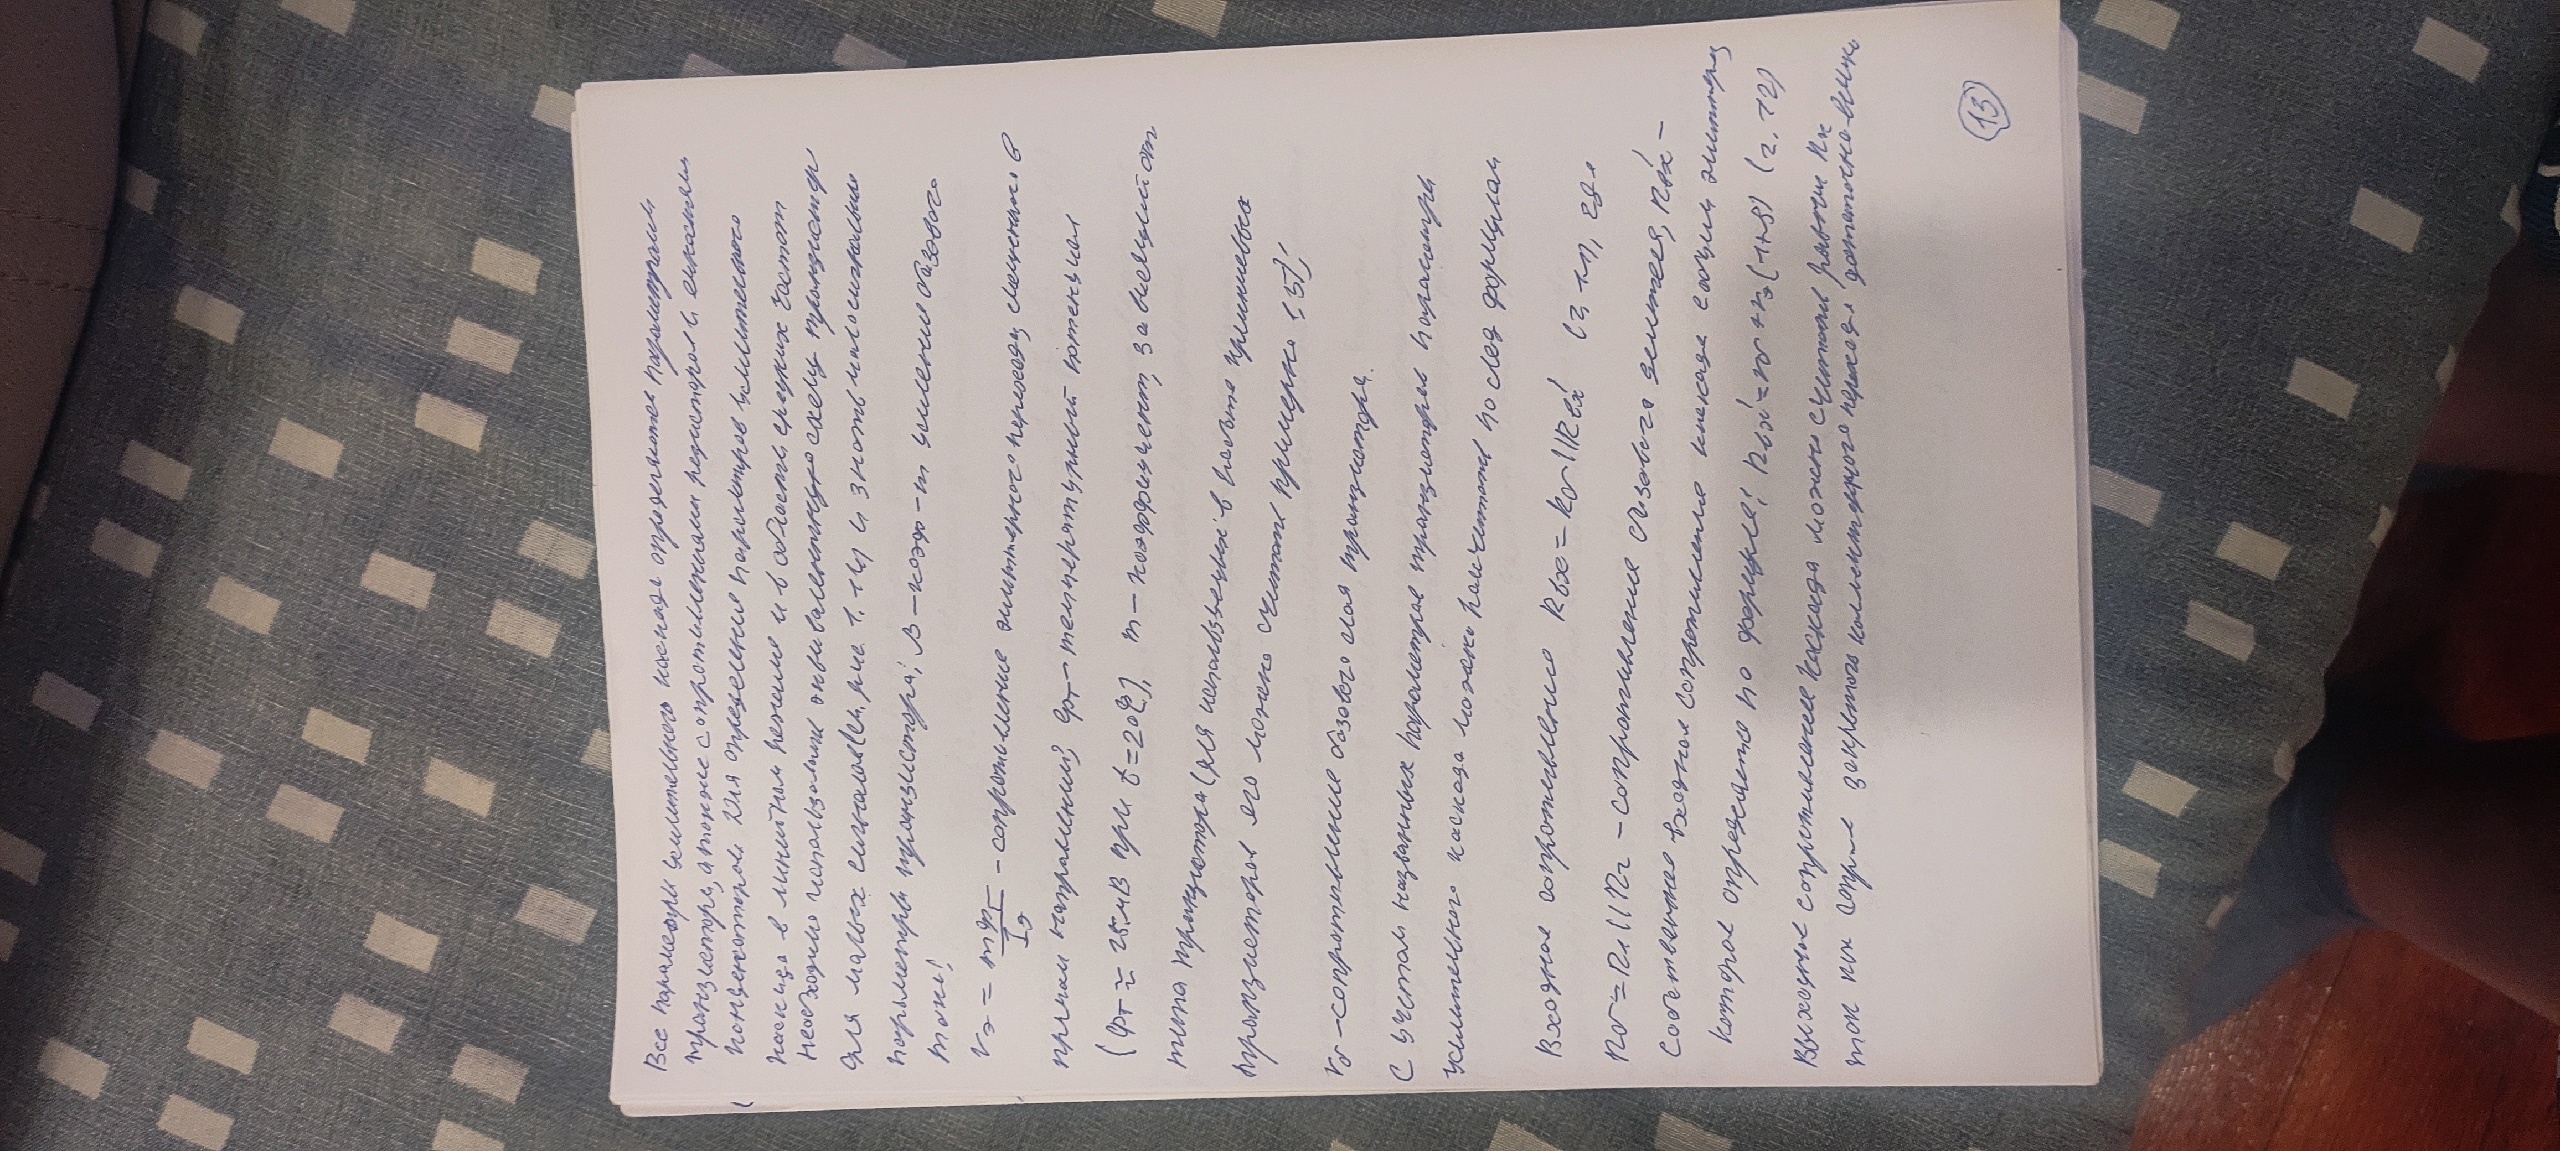 Все параметры усилительного каскада определяются параметрами
транзистора, а также сопротивлениями резисторов и емкостями
конденсаторов. Для определения параметров усилительного
каскада в линейном режиме и в области средних частот
необходимо использовать эквивалентную схему транзистора
для малых сигналов (см. рис 1.14) и знать малосигнальные
параметры транзистора; β - коэф-т усиления базового
тока;
rэ = mφт/Iэ - сопротивление эмиттерного перехода, смещенного в
прямом направлении; φт - температурный потенциал
(φт ≈ 25 мВ при t=20°), m - коэффициент, зависящий от
типа транзистора (для используемых в работе кремниевых
транзисторов его можно считать примерно 1,5);
rб - сопротивление базового слоя транзистора.
С учетом названных параметров транзисторов параметры
усилительного каскада можно рассчитать по след формулам
Входное сопротивление Rвх = Rб||Rвх' (2.11), где
Rб = R1||R2 - сопротивление базового делителя, Rвх' -
собственное входное сопротивление каскада с общим эмиттером,
которое определяется по формуле; Rвх' = rб + rэ(1+β) (2.12)
Выходное сопротивление каскада можно считать равным Rк
так как сопр-е закрытого коллекторного перехода достаточно велико
13